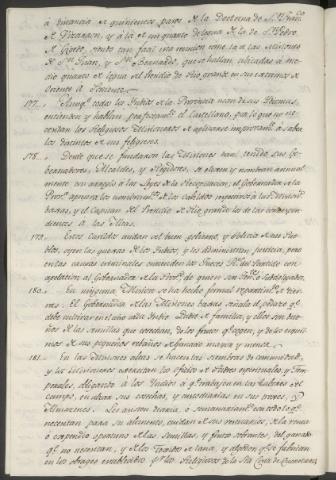 à distancia de quinientos pasos de la Doctrina de Sn. Franco.
de Vizarron, y à la de un quarto de legua de la de Sn. Pedro
de Gigedo, siendo tan facil una reunion como la de las Misiones
de Sn. Juan, y Sn. Bernardo, que se hallan situadas à me-
dio quarto de legua del Presidio de Rio grande en sus caminos de
Oriente à Poniente.
177. Aunqe. todos los Indios de la Provincia usan de sus Idiomas,
entienden y hablan perfectamte. el Castellano, por lo que no ne-
cesitan los Religiosos Misioneros de aplicarse à saber
los barbaros de sus feligreses.
178. Desde que se fundaron las Misiones han tenido sus Go-
bernadores, Alcaldes, y Regidores, se eligen y nombran annual
mente con arreglo à las Leyes de la Recopilacion; el Gobernador de la
Prova. aprueba los nombramtos. de los cabildos respectivos à las Misiones
bajas, y el Capitan del Presidio de Rio grande los de los correspon-
dientes à las altas.
179. Estos Cavildos cuidan del buen gobierno, y Policia de sus Pue-
blos, oyen las quejas de los Indios, y les administran justicia, pero
en las causas criminales entienden los Jueces Rs. del Partido con
apelacion al Gobernador de la Prova. de quien son Subdelegados.
180. En ninguna Mision se ha hecho formal repartimto. de tie-
rras. El Gobernador de las Misiones bajas señala el pedazo qe.
debe cultivar en el año cada Indio Padre de familia, y ellos son due-
ños de las semillas que cosechan, de los frutos qe. cogen, y de los esquil-
mos de sus pequeños rebaños de ganado mayor y menor.
181. En las Misiones altas se hacen las siembras de comunidad,
y los Misioneros exercitan los oficios de Padres espirituales, y Tem-
porales, dirigiendo à los Indios à qe. trabajen en las labores del
campo, en alzar sus cosechas, y custodiarlas en sus troxes, y
Almazenes. Les asisten diaria, ò semanariamte. con todo lo qe.
necesitan para su alimento, cuidan de sus vestuarios, de la venta
ò expendio oportuno de las semillas, y frutos sobrantes, del ganado
qe. no necesitan, y de los Texidos de lana, y algodon qe. se fabrican
en los obrages establecidos pr. los Religiosos de la Sta. Cruz de Queretaro,